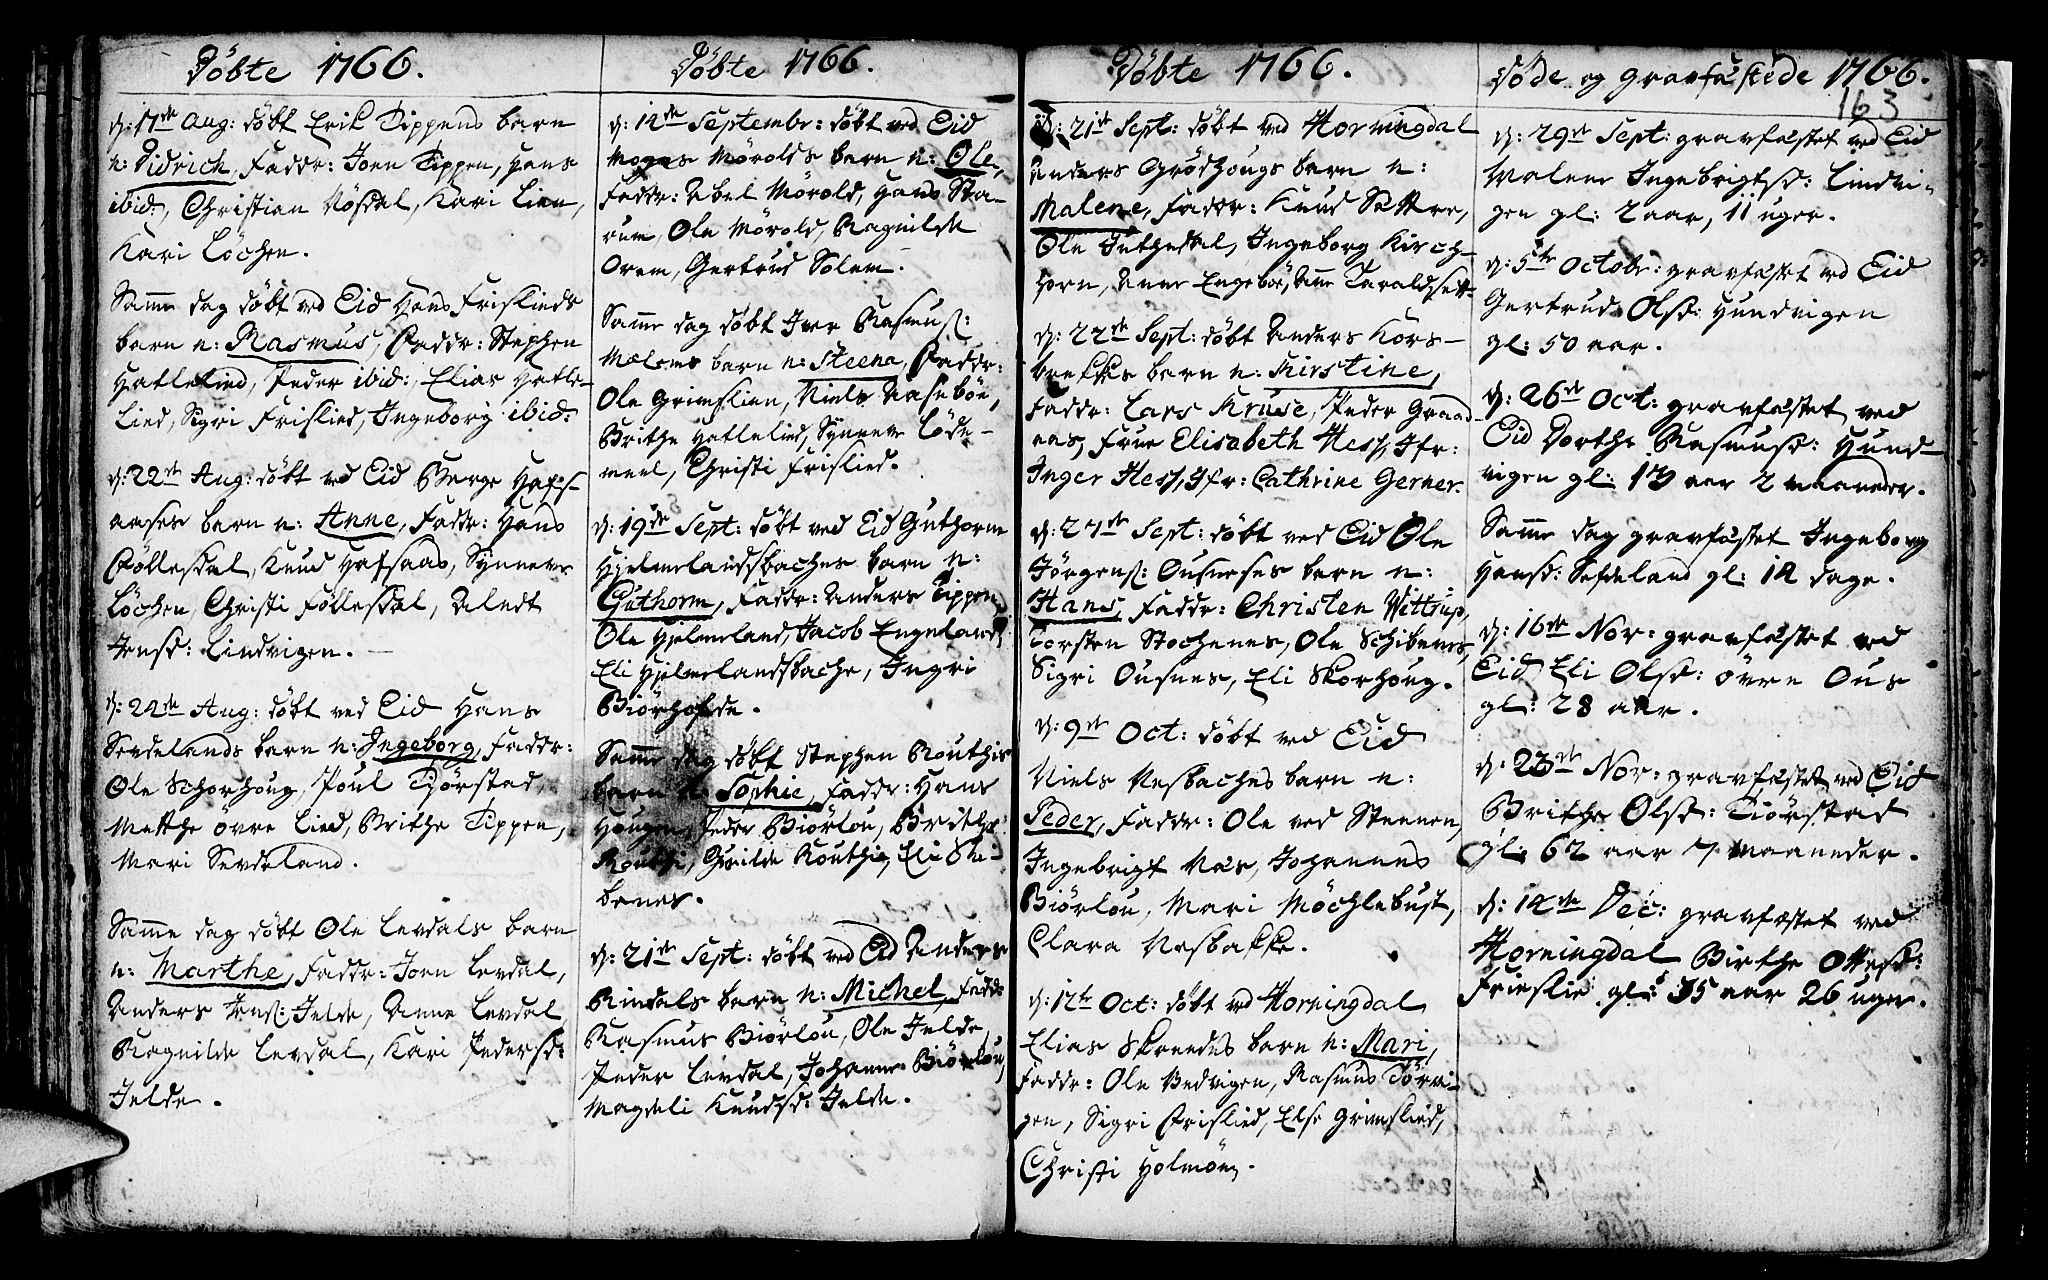 Döbte 1766.
d: 17de Aug: döbt Erik Tippens barn
n: Didrich, Faddr: Joen Tippen, Hans
ibid:, Christian Nösdal, Kari Lien,
Kari Löchen.
Samme dag döbt ved Eid Hans Frislieds
barn n: Rasmus, Faddr: Stephen
Hatlelied, Peder ibid:, Elias Hatle-
lied, Sigri Frislied, Ingeborg ibid:
d: 22de Aug: döbt ved Eid Berge Hafs-
aases barn n: Anne, Faddr: Hans
Föllesdal, Knud Hafsaas, Synneve
Löchen, Christi Föllesdal, Alndt
Jensd: Lindvigen.
d: 24de Aug: döbt ved Eid Hans
Sevdelands barn n: Ingeborg, Faddr:
Ole Schorhoug, Poul Tjörstad,
Mette övre Lied, Brithe Tippen,
Mari Sevdeland.
Samme dag döbt Ole Levdals barn
n: Marthe, Faddr: Joen Levdal,
Anders Jens: Jelde, Anne Levdal,
Ragnilde Levdal, Kari Pedersd:
Jelde.
Döbte 1766.
d: 14de Septembr: döbt ved Eid
Mogns Mörolds barn n: Ole,
Faddr: Abel Mörold, Hans Sta-
rum, Ole Mörold, Ragnilde
Orem, Gertrud Solem.
Samme dag döbt Iver Rasmus:
Mælems barn n: Steena, Faddr:
Ole Grimslien, Niels Aaseböe,
Brithe Hatlelied, Synneve Löde-
meel, Christi Frislied.
d: 19de Sept: döbt ved Eid Guthorm
Hjelmelandsbaches barn n:
Guthorm, Faddr: Anders Tippen,
Ole Hjelmeland, Jacob Engeland,
Eli Hjelmelandsbache, Ingri
Biörhofde.
Samme dag döbt Stephen Routhis
barn n: Sophie, Faddr: Hans
Hougen, Peder Biörlou, Brithe
Routhi, Gunilde Routhi, Eli Ski-
benes.
d: 21de Sept: döbt ved Eid Anders
Rindals barn n: Michel, Fadd:
Rasmus Biörlou, Ole Jelde,
Peder Levdal, Johanne Biörlou,
Magdeli Knudsd: Jelde.
Döbte 1766.
d: 21de Sept: döbt ved Horningdal
Anders Grödhougs barn n:
Malene, Faddr: Knud Sættre,
Ole Juthestal, Ingeborg Kirch-
horn, Anne Engeböe, Anne Taraldsett
d: 22de Sept: döbt Anders Kors-
brekkes barn n: Kirstine,
Faddr: Lars Kruse, Peder Graad-
aas, Frue Elisabeth Hess, Jfr:
Inger Hess, Jfr: Cathrine Gerner.
d: 27de Sept: döbt ved Eid Ole
Jörgens: Ousneses barn n:
Hans, Faddr: Christen Wittrup,
Torsten Stochenes, Ole Schibenes,
Sigri Ousnes, Eli Skorhoug.
d: 9de Oct: döbt ved Eid
Niels Nesbaches barn n:
Peder, Faddr: Ole ved Steenen,
Ingebrigt Næs, Johannes
Biörlou, Mari Möchlebust,
Clara Nesbakke.
d: 12te Oct: döbt ved Horningdal
Elias Skreedes barn n: Mari,
Faddr: Ole Nedvigen, Rasmus Törvi-
gen, Sigri Frislied, Else Grimslied,
Christi Holmöen.
Döde og gravfæstede 1766.
163
d: 29de Sept: gravfæstet ved Eid
Malene Ingebrigtsd: Lindvi-
gen gl: 2 aar, 11 uger.
d: 5te Octobr: gravfæstet ved Eid
Gertrud Olsd: Hundvigen
gl: 50 aar.
d: 26de Oct: gravfæstet ved
Eid Dorthe Rasmusd: Hund-
vigen gl: 13 aar 2 maaneder.
Samme dag gravfæstet Ingeborg
Hansd: Sefdeland gl: 14 dage.
d: 16de Nov: gravfæstet ved
Eid Eli Olsd: övre Ous
gl: 28 aar.
d: 23de Nov: gravfæstet ved Eid
Brithe Olsd: Tiörstad
gl: 62 aar 7 maaneder.
d: 14de Dec: gravfæstet ved
Horningdal Birthe Ottesd:
Frieslie gl: 35 aar 26 uger.